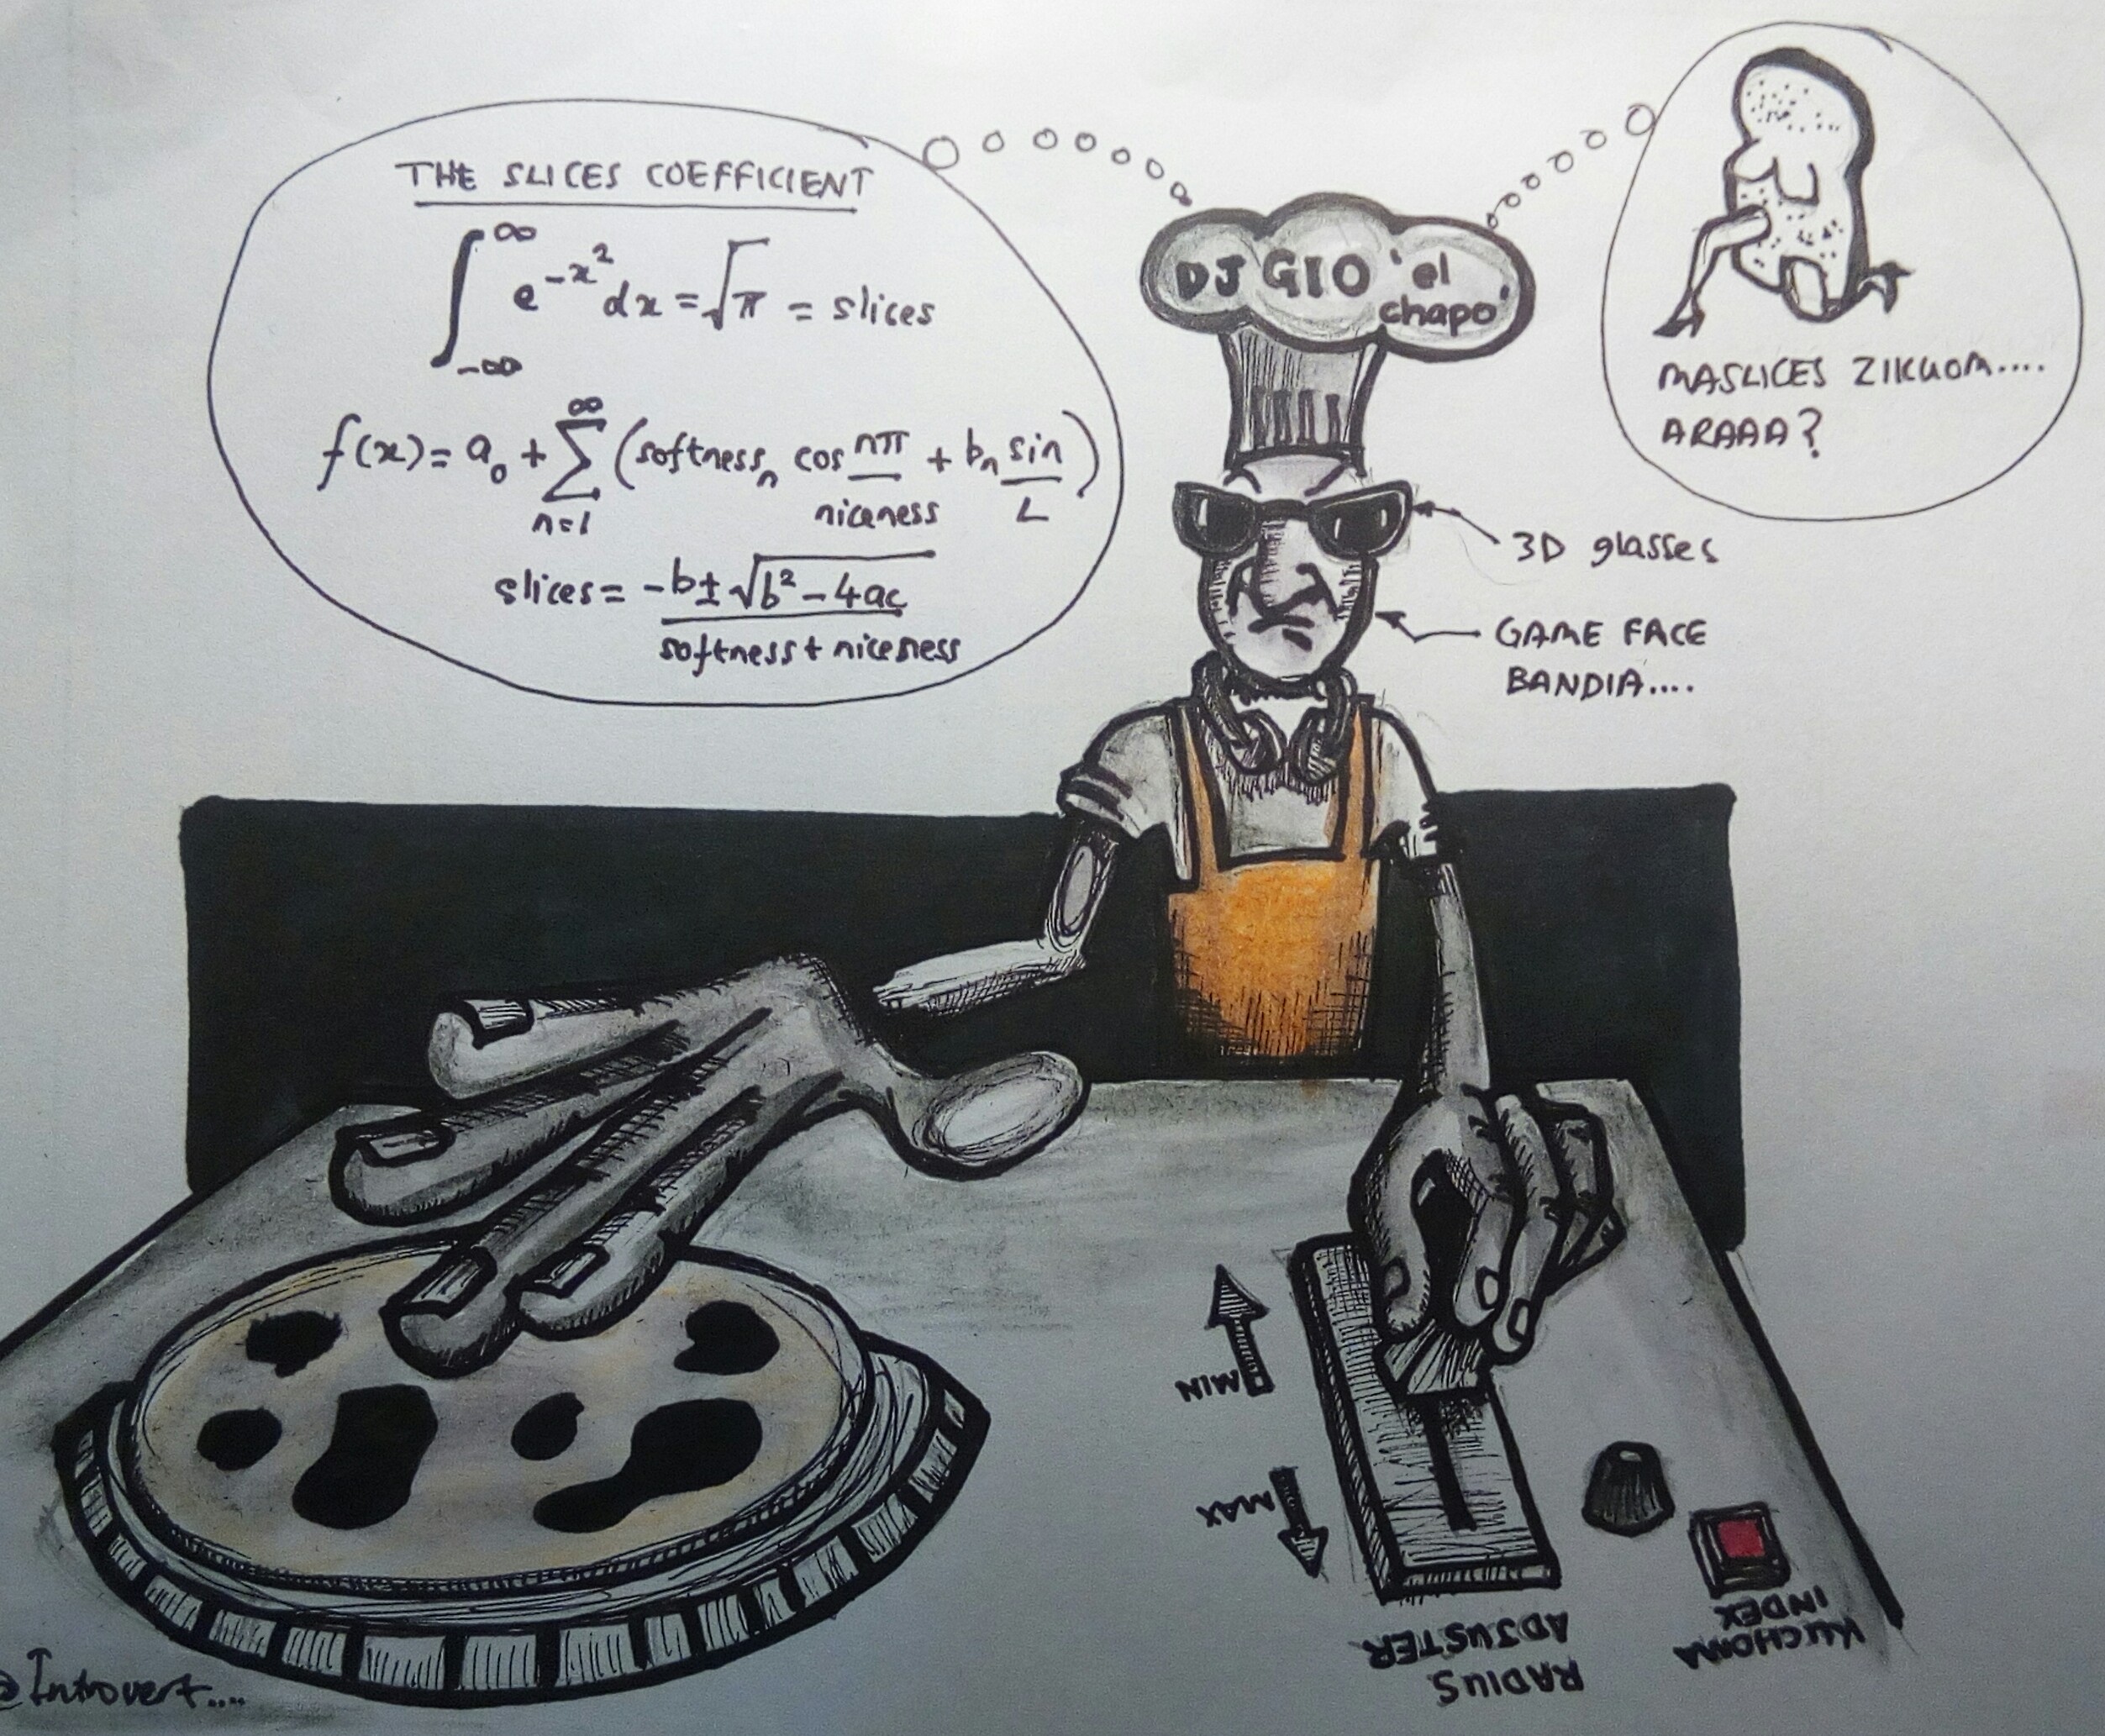 THE SLICES COEFFICIENT
∫_{-∞}^{∞} e^{-x²} dx = √π = slices
f(x) = a₀ + ∑_{n=1}^{∞} (softnessₙ cos nπ/niceness + bₙ sin/L)
slices = -b ± √(b² - 4ac) / softness + niceness
DJ GIO 'el
chapo'
MASLICES ZIKUOM....
ARAAA?
3D glasses
GAME FACE
BANDIA....
MIN
MAX
RADIUS
ADJUSTER
KUCHOMA
INDEX
@Introvert....